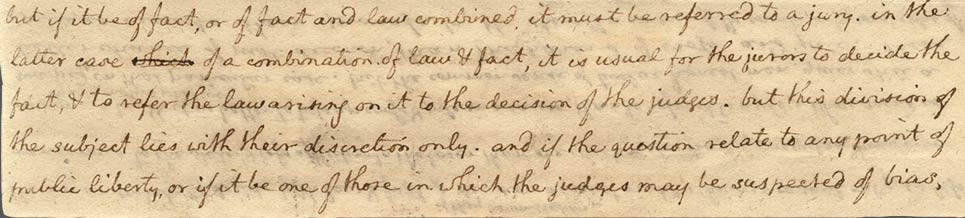 but if it be of fact, or of fact and law combined, it must be referred to a jury. in the
latter case which of a combination of law & fact, it is usual for the jurors to decide the
fact, & to refer the law arising on it to the decision of the judges. but this division of
the subject lies with their discretion only. and if the question relate to any point of
public liberty, or if it be one of those in which the judges may be suspected of bias,